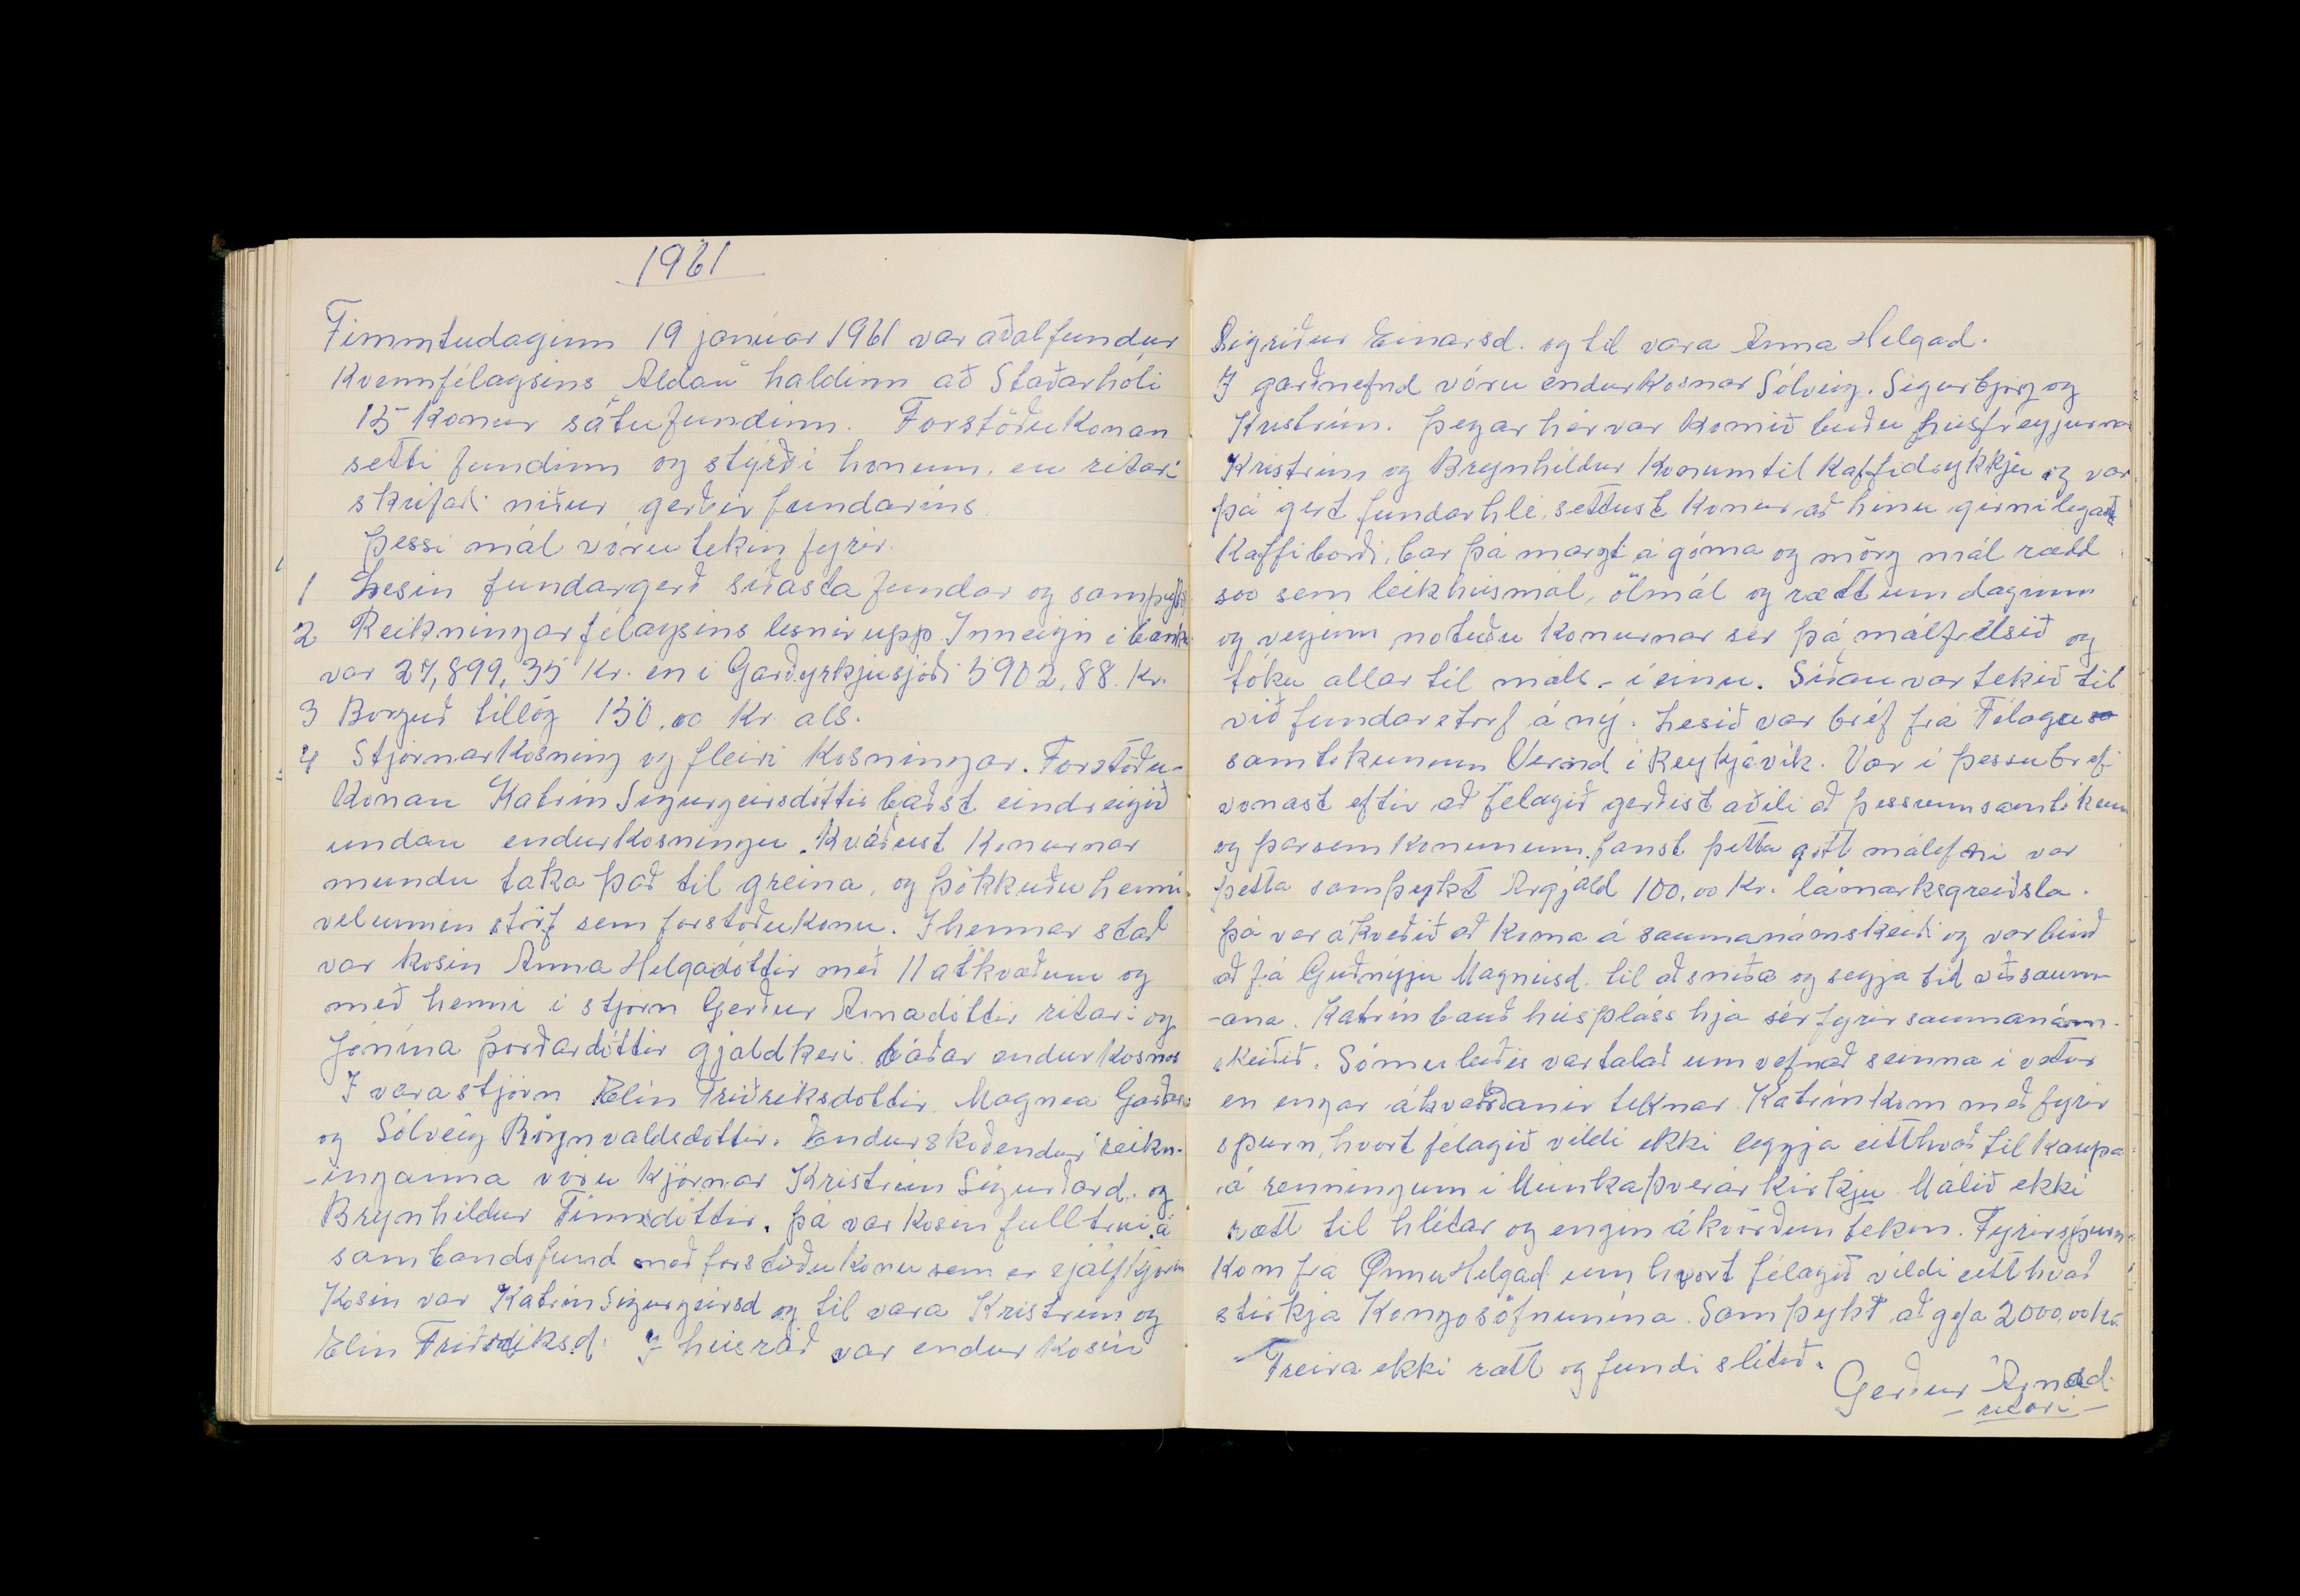 1961
Fimmtudaginn 19 janúar 1961 var aðalfundur
Kvennfélagsins Aldan haldinn að Staðarhóli
15 konur sátu fundinn. Forstöðukonan
setti fundinn og stýrði honum, en ritari
skrifaði niður gerðir fundarins
Þessi mál vóru tekin fyrir.
1 Lesin fundargerð síðasta fundar og samþykkt
2 Reikningar félagsins lesnir upp Inneign i banka
var 27,899,35 Kr. en i Garðyrkjusjóði 5902,88. Kr.
3 Borguð tillög 130,00 Kr als.
4 Stjórnarkosning og fleiri kosningar. Forstöðu-
konan Katrín Sigurgeirsdóttir baðst eindreigið
undan endurkosningu. Kváðust konurnar
mundu taka það til greina, og þökkuðu henni
velunnin störf sem forstöðukonu. I hennar stað
var kosin Anna Helgadóttir með 11 atkvæðum og
með henni i stjorn Gerður Arnadóttir ritari og
Jónína þorðardóttir gjaldkeri báðar endurkosnar
I varastjórn Elín Friðriksdóttir Magnea Garðars
og Sólveig Rögnvaldsdóttir. Endurskoðendur reikn-
-inganna vóru kjörnar Kristrún Sigurðard. og
Brynhildur Finnsdóttir. þá var kosin fulltrui á
sambandsfund með forstöðukonu sem er sjálfkjörin
Kosin var Katrín Sigurgeirsd og til vara Kristrun og
Elin Friðriksd. I húsráð var endurkosin
Sigriður Einarsd. og til vara Anna Helgad.
I garðnefnd vóru endurkosnar Sólveig. Sigurbjörg og
Kristrún. Þegar hér var komið buðu húsfreyjurnar
Kristrún og Brynhildur konum til kaffidrykkju og var
þá gert fundarhlé, settust konur að hinu girnilega
kaffiborði, bar þá margt á góma og mörg mál rædd
svo sem leikhúsmál, ölmál og rætt um daginn
og veginn notuðu konurnar sér þá málfrelsið og
tóku allar til máls - í einu. Síðan var tekið til
við fundarstörf á ný. Lesið var bréf frá Félagsu
samtökunum Vernd i Reykjavík. Var i þessu bréfi
vonast eftir að félagið gerðist aðili að þessum samtökum
og þar sem konunum fanst þetta gott málefni var
þetta samþykt Argjald 100,00 Kr. lámarksgreiðsla.
þá var ákveðið að koma á saumanámskeiði og var búið
að fá Guðnýju Magnúsd. til að sniða og segja til við saum-
-ana. Katrín bauð húspláss hja sér fyrir saumanám-
skeiðið. Sömuleiðis var talað um vefnað seinna i vetur
en engar ákvarðanir teknar. Katrín kom með fyrir
spurn, hvort félagið vildi ekki leggja eitthvað til kaupa
á renningum i Munkaþverár kirkju. Málið ekki
rætt til hlítar og engin ákvörðun tekin. Fyrirspurn
kom frá Önnu Helgad um hvort félagið vildi eitthvað
stirkja Kongosöfnunina. Samþykt að gefa 2000,00 kr.
Freira ekki rætt og fundi slitið.
Gerður Arnad.
- ritari -